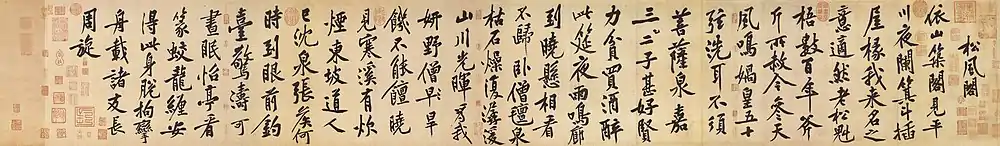 松風閣
依山築閣見平
川夜闌箕斗插
屋椽我来名之
意適然老松魁
梧數百年斧
斤所赦今參天
風鳴媧皇五十
弦洗耳不須
菩薩泉嘉
三二子甚好賢
力貧買酒醉
此筵夜雨鳴廊
到曉懸相看
不歸臥僧氈泉
枯石燥復潺湲
山川光暉為我
妍野僧早
饑不能饘曉
見寒溪有炊
煙東坡道人
已沈泉張侯何
時到眼前釣
臺驚濤可
晝眠怡亭看
篆蛟龍纏安
得此身脫拘攣
舟載諸友長
周旋